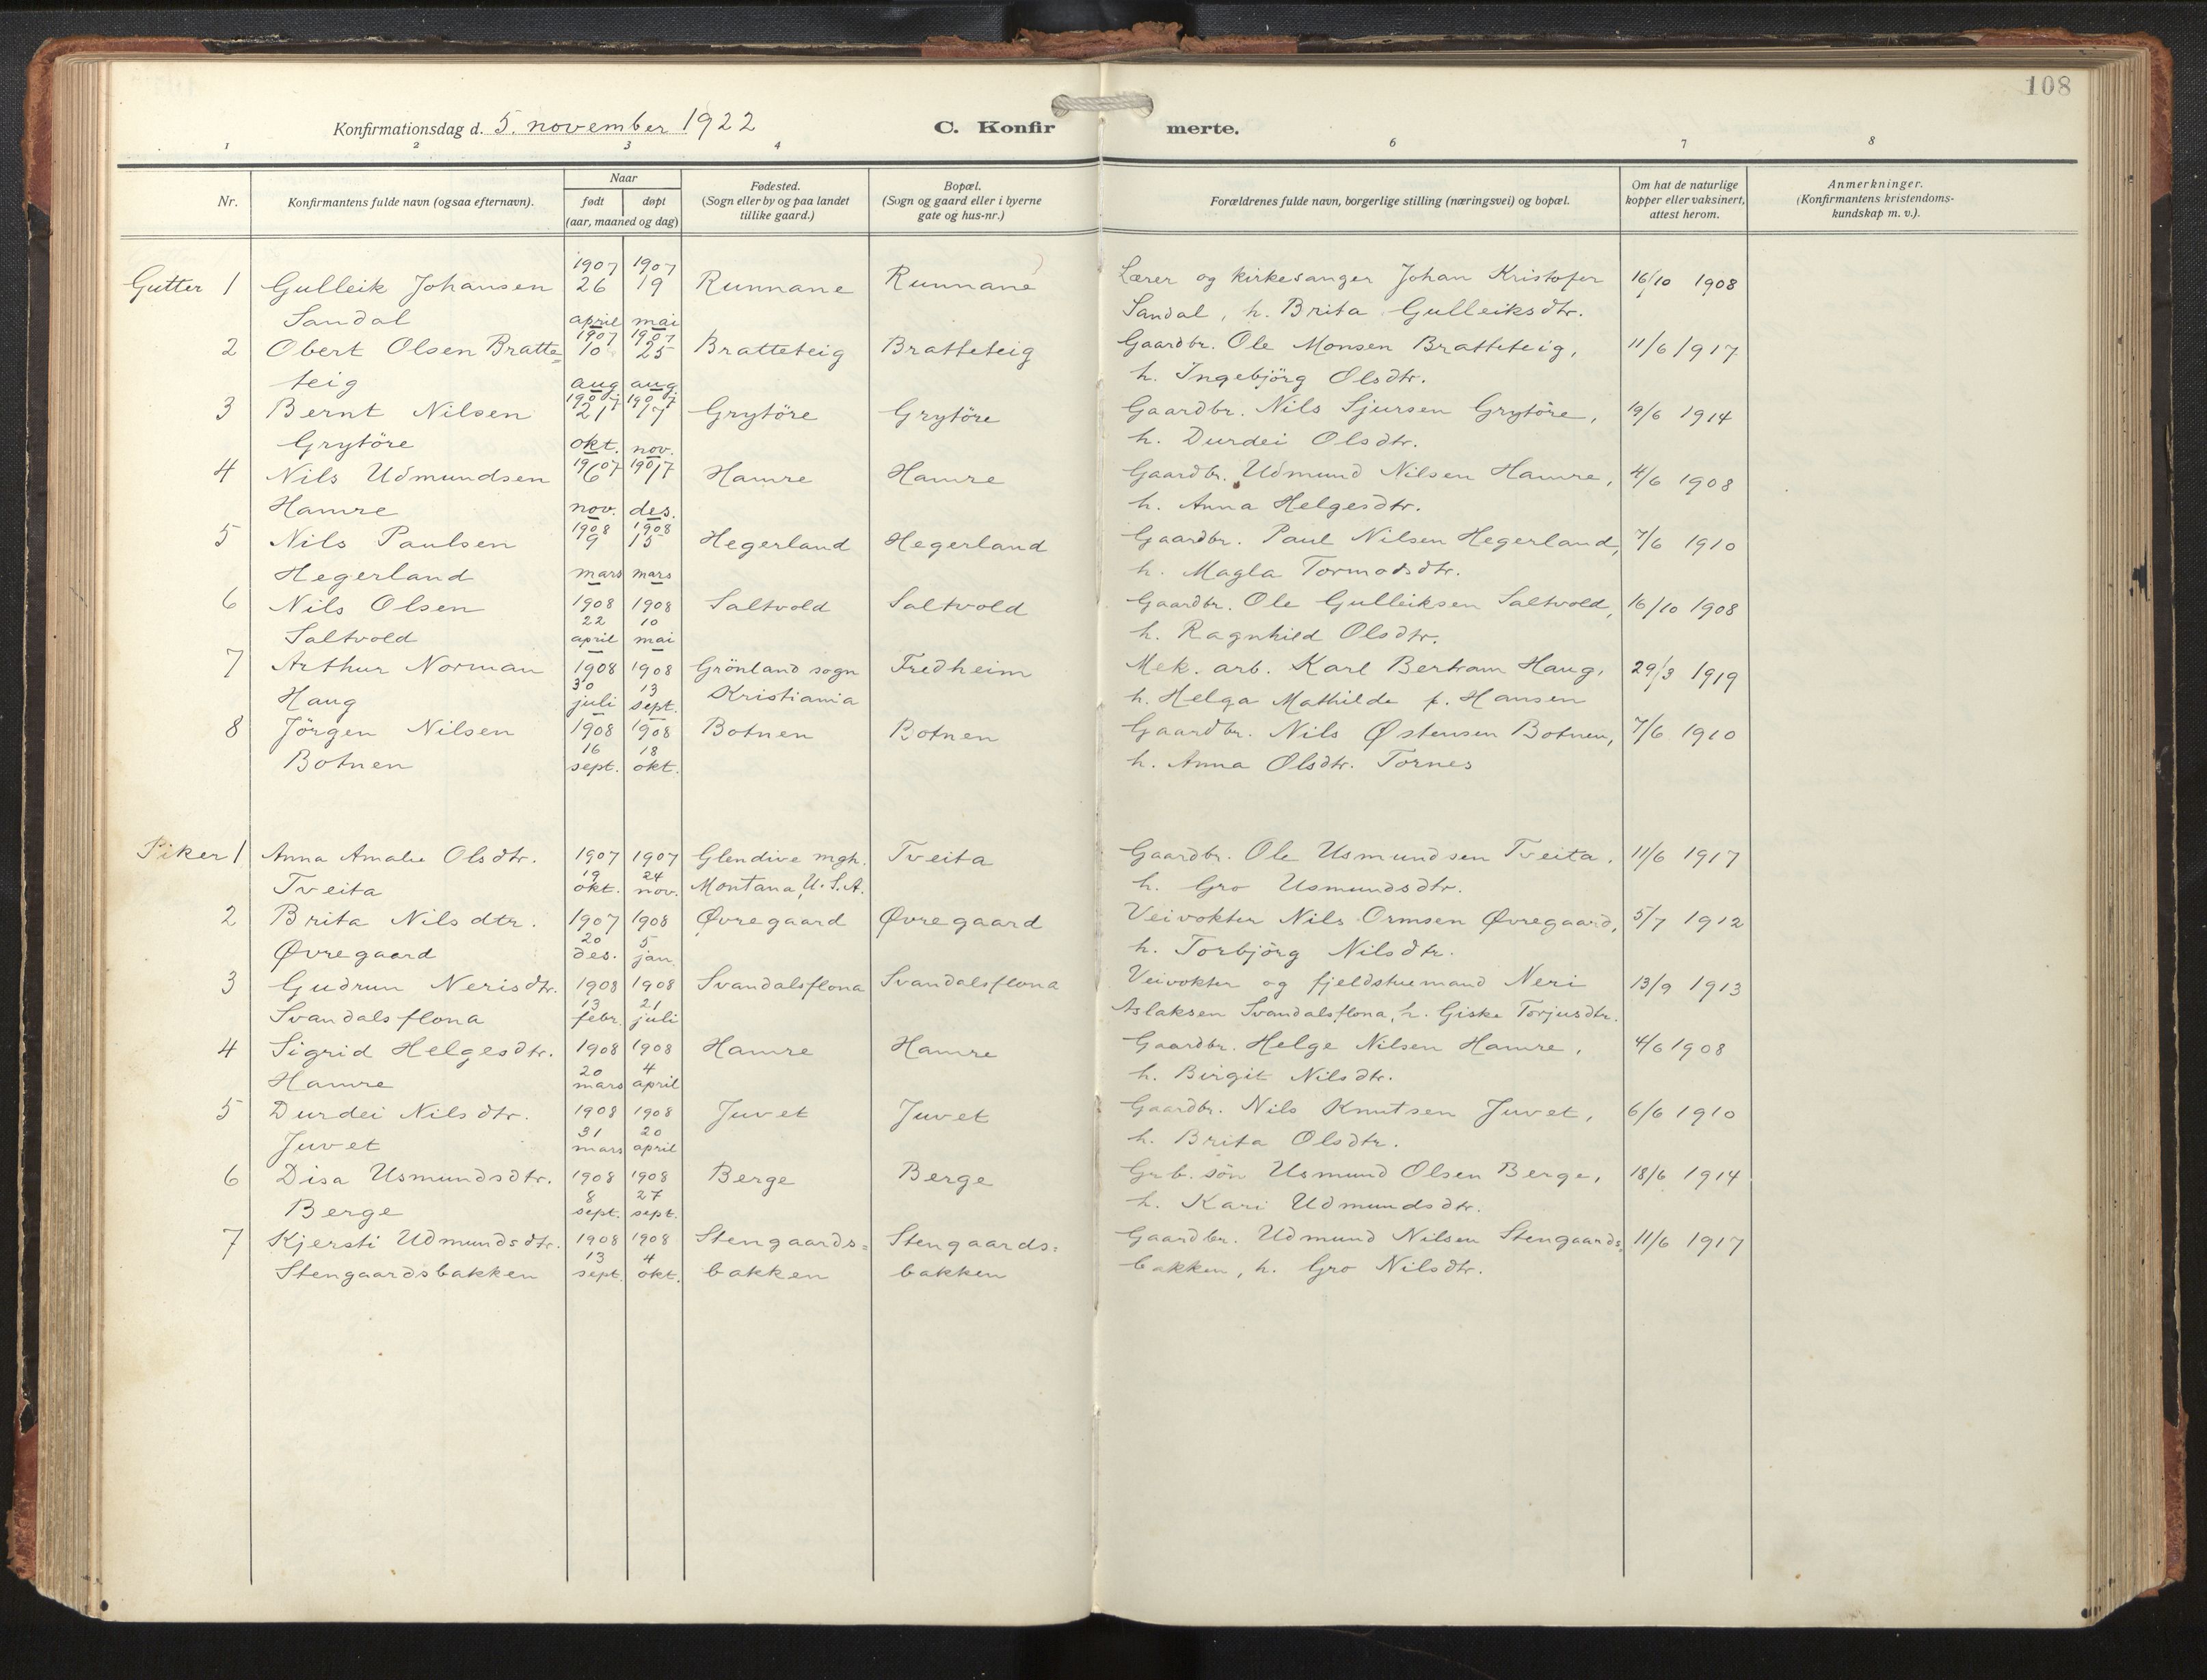 108
Konfirmationsdag d. 5. november 1922
C. Konfirmerte.
1 2 3 4 6 7 8
Nr.
Konfirmantens fulde navn (ogsaa efternavn).
Naar
født døpt
(aar, maaned og dag)
Fødested.
(Sogn eller by og paa landet
tillike gaard.)
Bopæl.
(Sogn og gaard eller i byerne
gate og hus-nr.)
Forældrenes fulde navn, borgerlige stilling (næringsvei) og bopæl.
Om hat de naturlige
kopper eller vaksinert,
attest herom.
Anmerkninger.
(Konfirmantens kristendoms-
kundskap m. v.).
1907 1907
Gutter 1 Gulleik Johansen 26 19 Runnane Runnane Lærer og kirkesanger Johan Kristofer 16/10 1908
Sandal april mai Sandal, h. Brita Gulleiksdtr.
1907 1907
2 Obert Olsen Bratte= 10 25 Bratteteig Bratteteig Gaardbr. Ole Monsen Bratteteig, 11/6 1917
teig aug aug h. Ingebjörg Olsdtr.
1907 1907
3 Bernt Nilsen 21 17 Grytöre Grytöre Gaardbr. Nils Sjursen Grytöre, 19/6 1914
Grytöre okt. nov. h. Durdei Olsdtr.
1907 1907
4 Nils Udmundsen 6 1 Hamre Hamre Gaardbr. Udmund Nilsen Hamre, 4/6 1908
Hamre nov. des. h. Anna Helgesdtr.
1908 1908
5 Nils Paulsen 9 15 Hegerland Hegerland Gaardbr. Paul Nilsen Hegerland, 7/6 1910
Hegerland mars mars h. Magla Tormodsdtr.
6 Nils Olsen 1908 1908 Saltvold Saltvold Gaardbr. Ole Gulleiksen Saltvold, 16/10 1908
22 10
Saltvold april mai h. Ragnhild Olsdtr.
7 Arthur Norman 1908 1908 Grönland sogn Fredheim Mek. arb. Karl Bertram Haug, 29/3 1919
30 13
Haug juli sept. Kristiania h. Helga Mathilde f. Hansen
8 Jörgen Nilsen 1908 1908 Botnen Botnen Gaardbr. Nils Østensen Botnen, 7/6 1910
16 18
Botnen sept. okt. h. Anna Olsdtr. Tornes
Piker 1 Anna Amalie Olsdtr. 1907 1907 Glendive mgh. Tveita Gaardbr. Ole Usmundsen Tveita, 11/6 1917
19 24
Tveita okt. nov. Montana, U.S.A. h. Gro Usmundsdtr.
2 Brita Nilsdtr. 1907 1908 Øvregaard Øvregaard Veivokter Nils Ormsen Øvregaard, 5/7 1912
20 5
Øvregaard des. jan. h. Torbjörg Nilsdtr.
3 Gudrun Nerisdtr. 1908 1908 Svandalsflona Svandalsflona Veivokter og fjeldstuemand Neri 13/9 1913
13 21
Svandalsflona febr. juli Aslaksen Svandalsflona, h. Giske Torjusdtr.
4 Sigrid Helgesdtr. 1908 1908 Hamre Hamre Gaardbr. Helge Nilsen Hamre, 4/6 1908
20 4
Hamre mars april h. Birgit Nilsdtr.
5 Durdei Nilsdtr. 1908 1908 Juvet Juvet Gaardbr. Nils Knutsen Juvet, 6/6 1910
31 20
Juvet mars april h. Brita Olsdtr.
6 Disa Usmundsdtr. 1908 1908 Berge Berge Grb. sön Usmund Olsen Berge, 18/6 1914
8 27
Berge sept. sept. h. Kari Udmundsdtr.
7 Kjersti Udmundsdtr. 1908 1908 Stengaards= Stengaards= Gaardbr. Udmund Nilsen Stengaards= 11/6 1917
13 4
Stengaardsbakken sept. okt. bakken bakken bakken, h. Gro Nilsdtr.